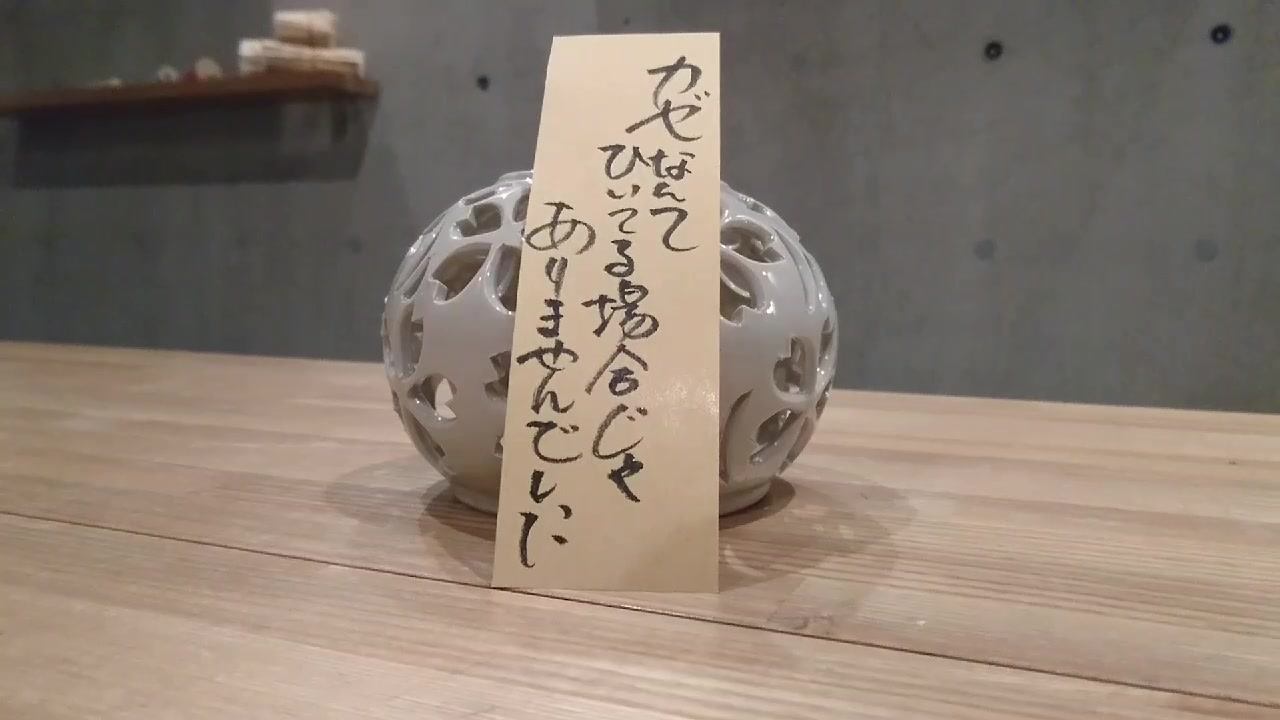 カゼなんて
ひいてる場合じゃ
ありませんでした